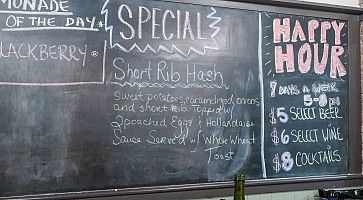 MONADE
OF THE DAY*
BLACKBERRY*
SPECIAL
Short Rib Hash
sweet potatoes, caramelized onions
and short rib topped w/
2 poached Eggs & Hollandaise
Sauce Served w/ Whole Wheat
Toast
HAPPY
HOUR
7 DAYS A WEEK
5-8 pm
$5 SELECT BEER
$6 SELECT WINE
$8 COCKTAILS